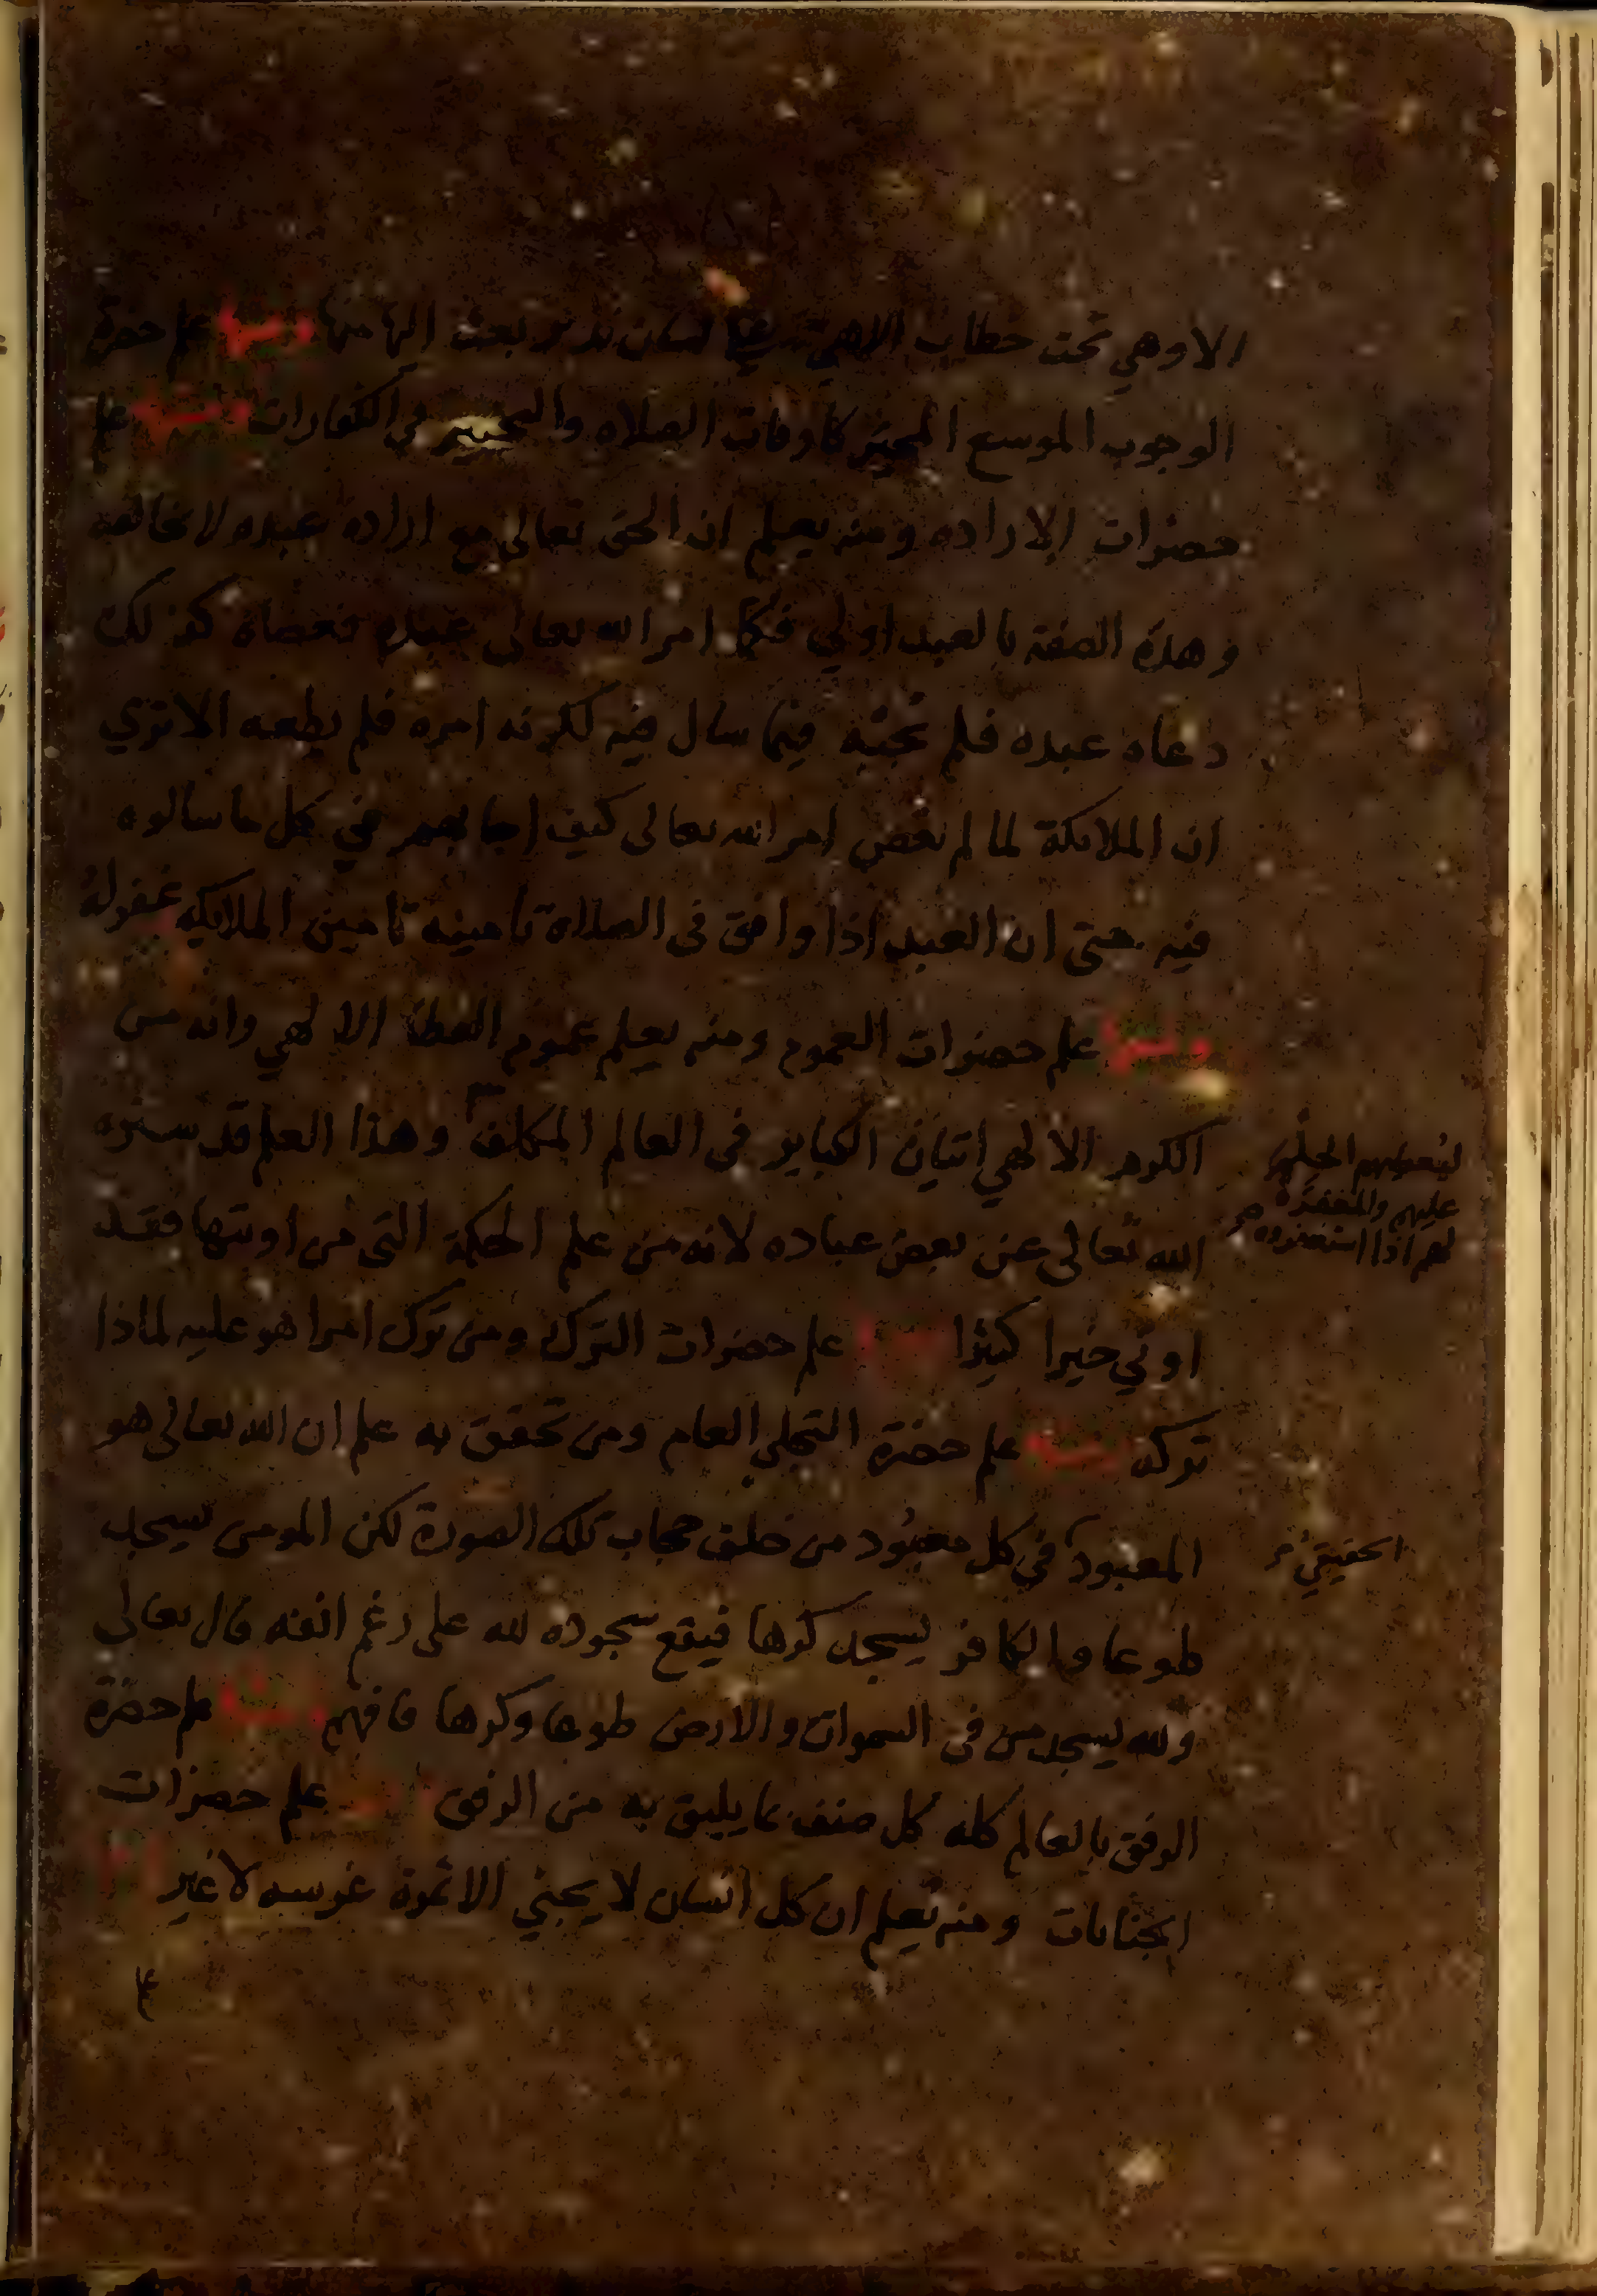 الا وهي تحت خطاب الاهي على لسان نذير بعث اليها منها ومنها علم حضرة
الوجوب الموسع المخير كاوقات الصلاه والتخيير في الكفارات ومنها علم
حضرات الاراده ومنه يعلم ان الحق تعالى مع اراده عبده لا يخالفه
وهذه الصفة بالعبد اولي فكما امر الله تعالى عبده فعصاه كذلك
دعاه عبده فلم يجبه فيما سال فيه لكونه امره فلم يطعه الا تري
ان الملايكة لما لم تعص امر الله تعالى كيف اجابهم في كل ما سالوه
فيه حتى ان العبد اذا وافق في الصلاة تامينه تامين الملايكه غفر له
ومنها علم حضرات العموم ومنه يعلم عموم العطا الالهي وانه من
الكرم الالهي اتيان الكباير في العالم المكلف وهذا العلم قد ستره
ليعطيهم الحلم
عليهم والمغفرة
لهم اذا استغفروه صح
الله تعالى عن بعض عباده لانه من علم الحكمة التي من اوتيها فقد
اوتي خيرا كثيرا ومنها علم حضرات الترك ومن ترك امرا هو عليه لماذا
تركه ومنها علم حضرة التجلي العام ومن تحقق به علم ان الله تعالى هو
المعبود في كل معبود من خلف حجاب تلك الصورة لكن المومن يسجد
الحقيقي
طوعا والكافر يسجد كرها فيقع سجوده لله على رغم انفه قال تعالى
ولله يسجد من في السموات والارض طوعا وكرها فافهم ومنها علم حضرة
الرفق بالعالم كله كل صنف بما يليق به من الرفق ومنها علم حضرات
الجنايات ومنه يعلم ان كل انسان لا يجني الا ثمرة غرسه لا غير
علم